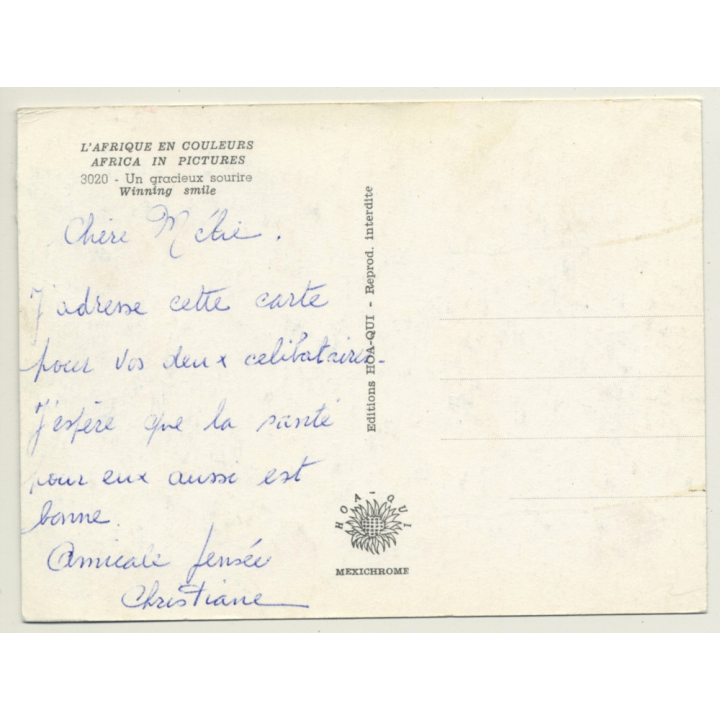 L'AFRIQUE EN COULEURS
AFRICA IN PICTURES
3020 - Un gracieux sourire
Winning smile
Chère
J'adresse cette carte
pour vos deux celibataires.
J'espère que la santé
pour eux aussi est
bonne.
Amicale pensée
Christiane
Editions HOA-QUI - Reprod. interdite
HOA-QUI
MEXICHROME